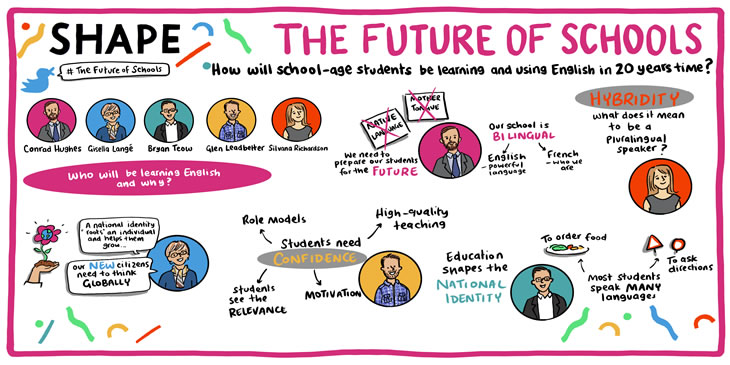 SHAPE
THE FUTURE OF SCHOOLS
# The Future of Schools
How will school-age students be learning and using English in 20 years time?
Conrad Hughes
Gisella Langé
Bryan Teow
Glen Leadbetter
Silvana Richardson
Who will be learning English
and why?
NATIVE
LANGUAGE
MOTHER
TONGUE
We need to
prepare our students
for the FUTURE
Our school is
BILINGUAL
English
powerful
language
French
- who we
are
HYBRIDITY
What does it mean
to be a
Pluralingual
speaker?
A national identity
'roots' an individual
and helps them
grow...
our NEW citizens
need to think
GLOBALLY
Role Models
High-quality
teaching
Students need
CONFIDENCE
Students
see the
RELEVANCE
MOTIVATION
Education
shapes the
NATIONAL
IDENTITY
To order food
To ask
directions
Most students
speak MANY
languages